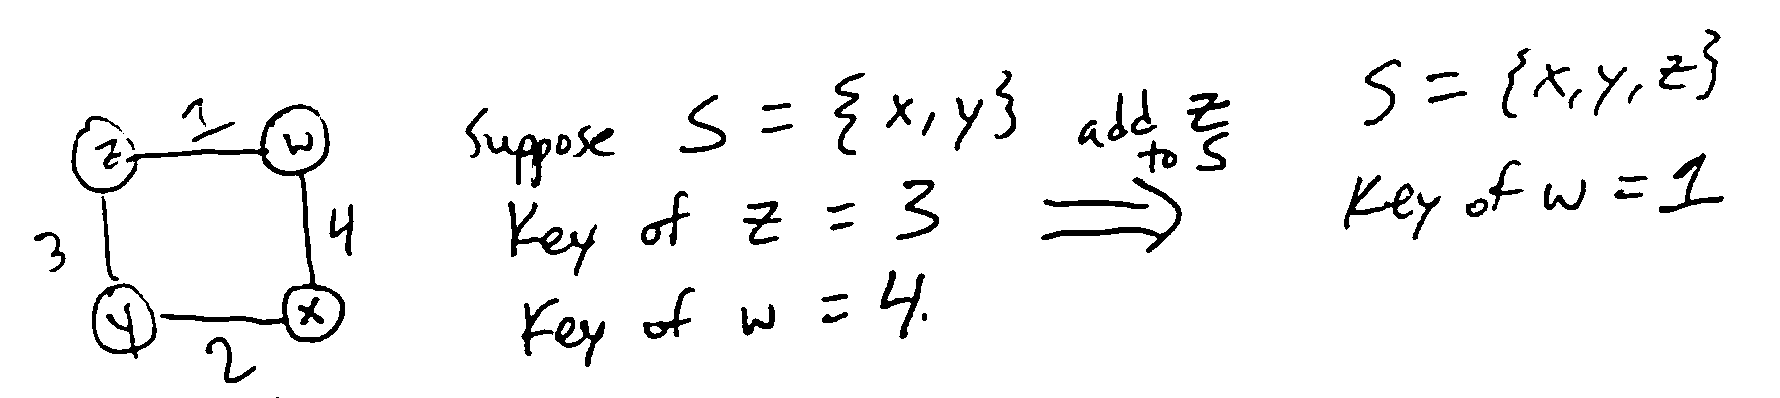 z 1 w
3 4
y 2 x
Suppose S = {x, y}
Key of z = 3
Key of w = 4.
add z
to S
⇒
S = {x, y, z}
Key of w = 1